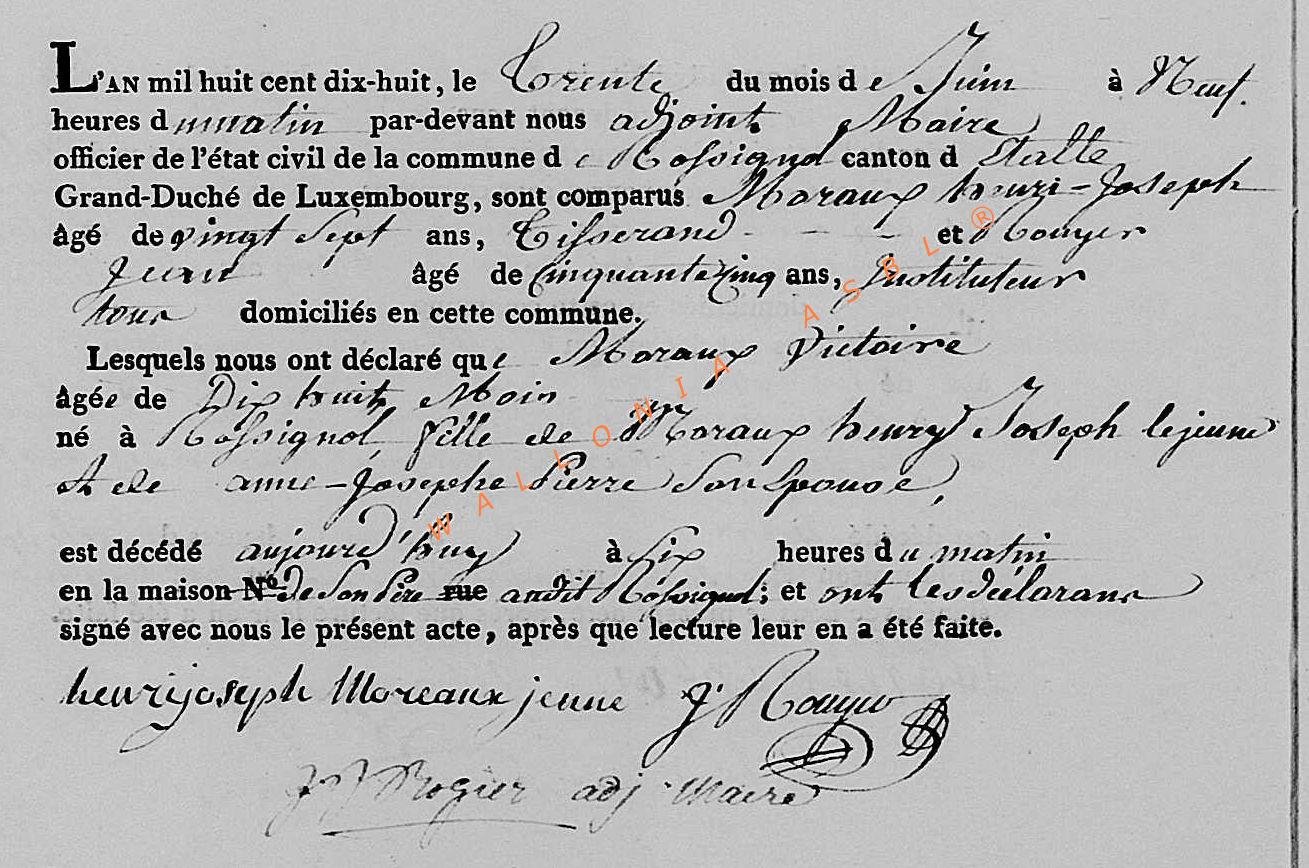 L'AN mil huit cent dix-huit, le Trente du mois de Juin à Neuf
heures du matin par-devant nous adjoint Maire
officier de l'état civil de la commune de Rossignol canton d'Etalle
Grand-Duché de Luxembourg, sont comparus Moraux henri-Joseph
âgé de vingt sept ans, Tisserand et Rouyer
Jean âgé de Cinquante Cinq ans, Instituteur
tous domiciliés en cette commune.
Lesquels nous ont déclaré que Moraux Victoire
âgée de Dix huit Mois
né à Rossignol, fille de Moraux henry Joseph le jeune
et de anne-Josephe Pierre Son Epouse,
est décédé aujourd'huy à Six heures du matin
en la maison No. de Son Père rue audit Rossignol; et ont les déclarans
signé avec nous le présent acte, après que lecture leur en a été faite.
henrijoseph Moreaux jeune J Rouyer
JJ Rogier adj. Maire
WALLONIA ASBL®